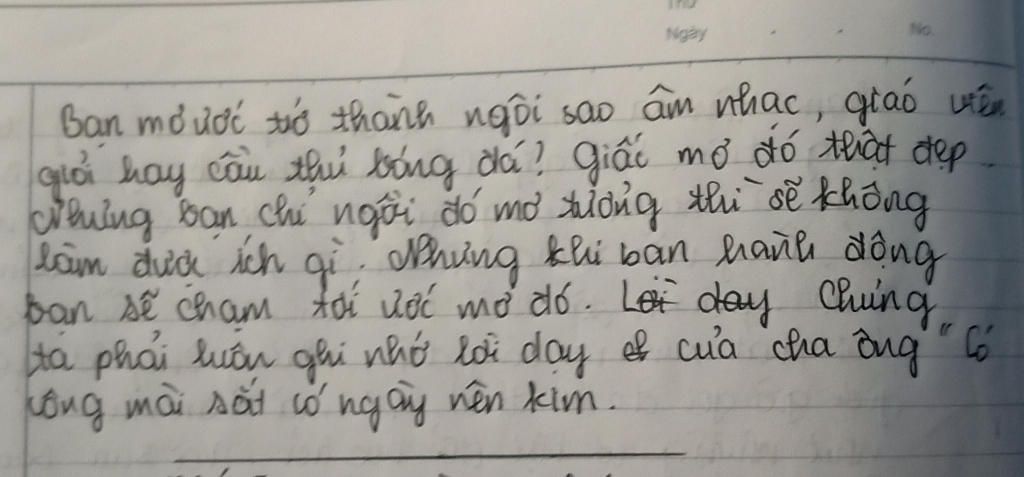 Thứ
Ngày . . No.
Bạn mơ ước trở thành ngôi sao âm nhạc, giáo viên
giỏi hay cầu thủ bóng đá? Giấc mơ đó thật đẹp.
Nhưng bạn chỉ ngồi đó mơ tưởng thì sẽ không
làm được ích gì. Nhưng khi bạn hành động
bạn sẽ chạm tới ước mơ đó. Lời dạy Chúng
ta phải luôn ghi nhớ lời dạy của cha ông "Có
công mài sắt có ngày nên kim.